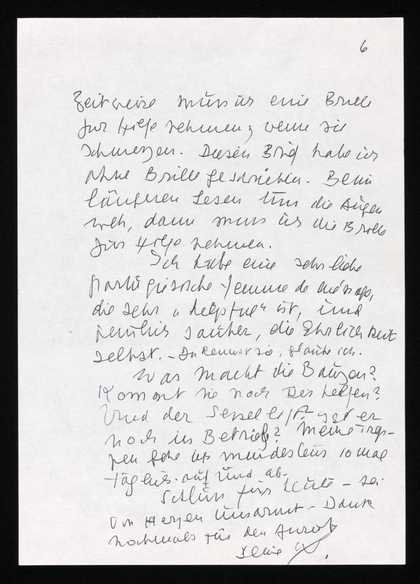 6
Zeitweise muss ich eine Brille
zur Hilfe nehmen, wenn sie
schmerzen. Diesen Brief habe ich
ohne Brille geschrieben. Beim
längeren Lesen tun die Augen
weh, dann muss ich die Brille
zur Hilfe nehmen.
Ich habe eine sehr liebe
portugiesische femme de ménage,
die sehr "helpful" ist, und
peinlich sauber, die Ehrlichkeit
selbst. - Du kennst sie, glaube ich.
Was macht die
Kommt sie noch Des helfen?
Und der er
noch in Betrieb? Meine Trep-
pen gehe ich mindestens 10 mal
täglich auf und ab.
Schluss fürs heute - sei
von Herzen umarmt - Dank
nochmals für den Anruf
Deine